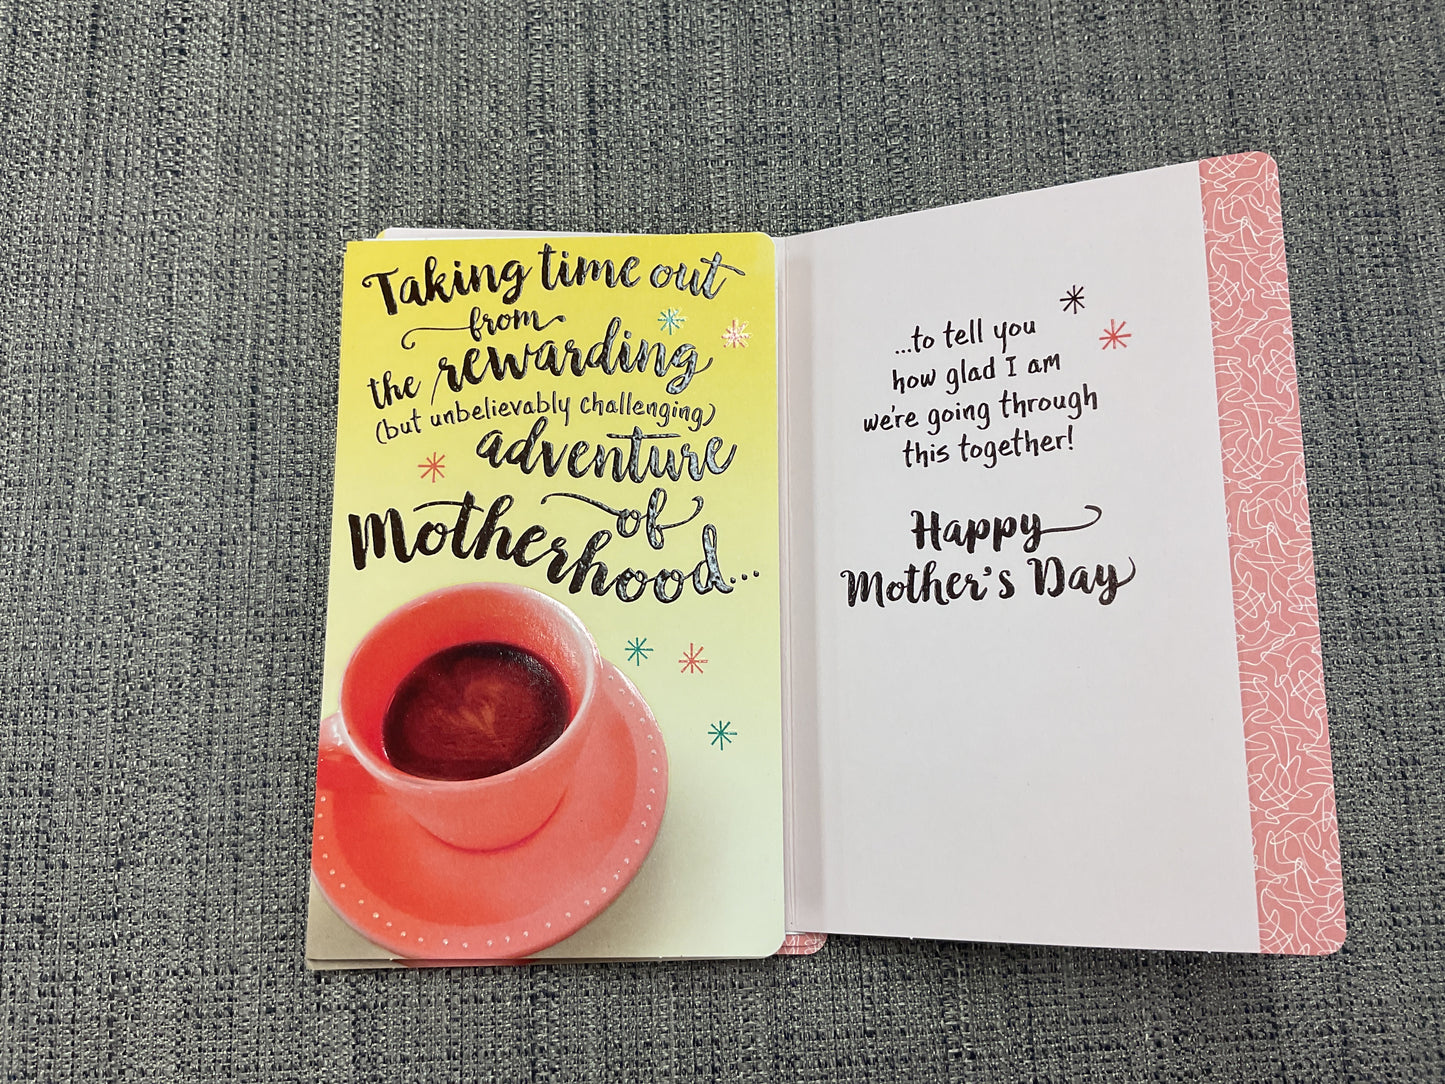 Taking time out
from
the rewarding
(but unbelievably challenging)
adventure
of
Motherhood...
...to tell you
how glad I am
we're going through
this together!
Happy
Mother's Day